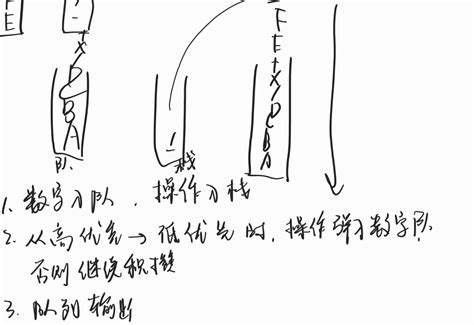 F
E
-
+
X
/
D
C
B
A
队
-
栈
F
E
+
X
/
D
C
B
A
1. 数字入队, 操作入栈
2. 从高优先→低优先时, 操作弹入数字队
否则继续积攒
3. 队列输出